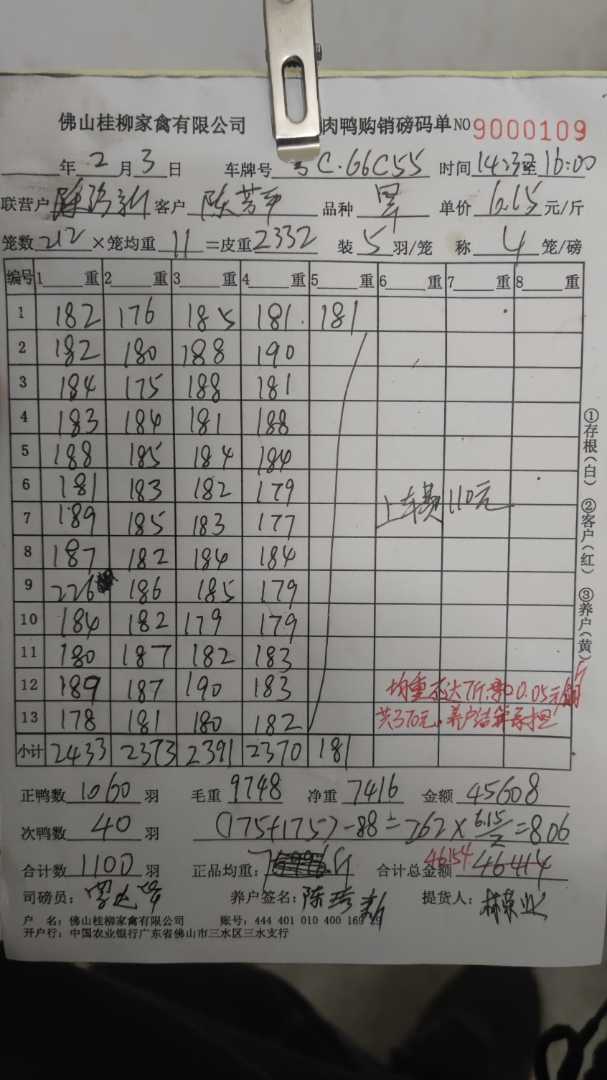 佛山桂柳家禽有限公司 肉鸭购销磅码单 NO 9000109
年 2 月 3 日 车牌号 粤C·G6C55 时间 14:33至16:00
联营户 客户 陈芳平 品种 单价 6.15 元/斤
笼数 212 ×笼均重 11 =皮重 2332 装 5 羽/笼 称 4 笼/磅
编号 1 重 2 重 3 重 4 重 5 重 6 重 7 重 8 重
1 182 176 185 181 181
2 182 180 188 190
3 184 175 188 181
4 183 184 181 188
5 188 185 184 184
6 181 183 182 179
7 189 185 183 177
8 187 182 184 184
9 226 186 185 179
10 184 182 179 179
11 180 187 182 183
12 189 187 190 183
13 178 181 180 182
小计 2433 2373 2391 2370 181
上车费110元
均重不达7斤扣0.05元/斤
共370元。养户结算承担
①存根(白) ②客户(红) ③养户(黄)
正鸭数 1060 羽 毛重 9748 净重 7416 金额 45608
次鸭数 40 羽 (175+175)-88=262×6.15/2=806
合计数 1100 羽 正品均重: 斤 合计总金额 46154 46414
司磅员: 养户签名: 提货人: 林荣业
户 名: 佛山桂柳家禽有限公司 账号: 444 401 010 400 169
开户行: 中国农业银行广东省佛山市三水区三水支行